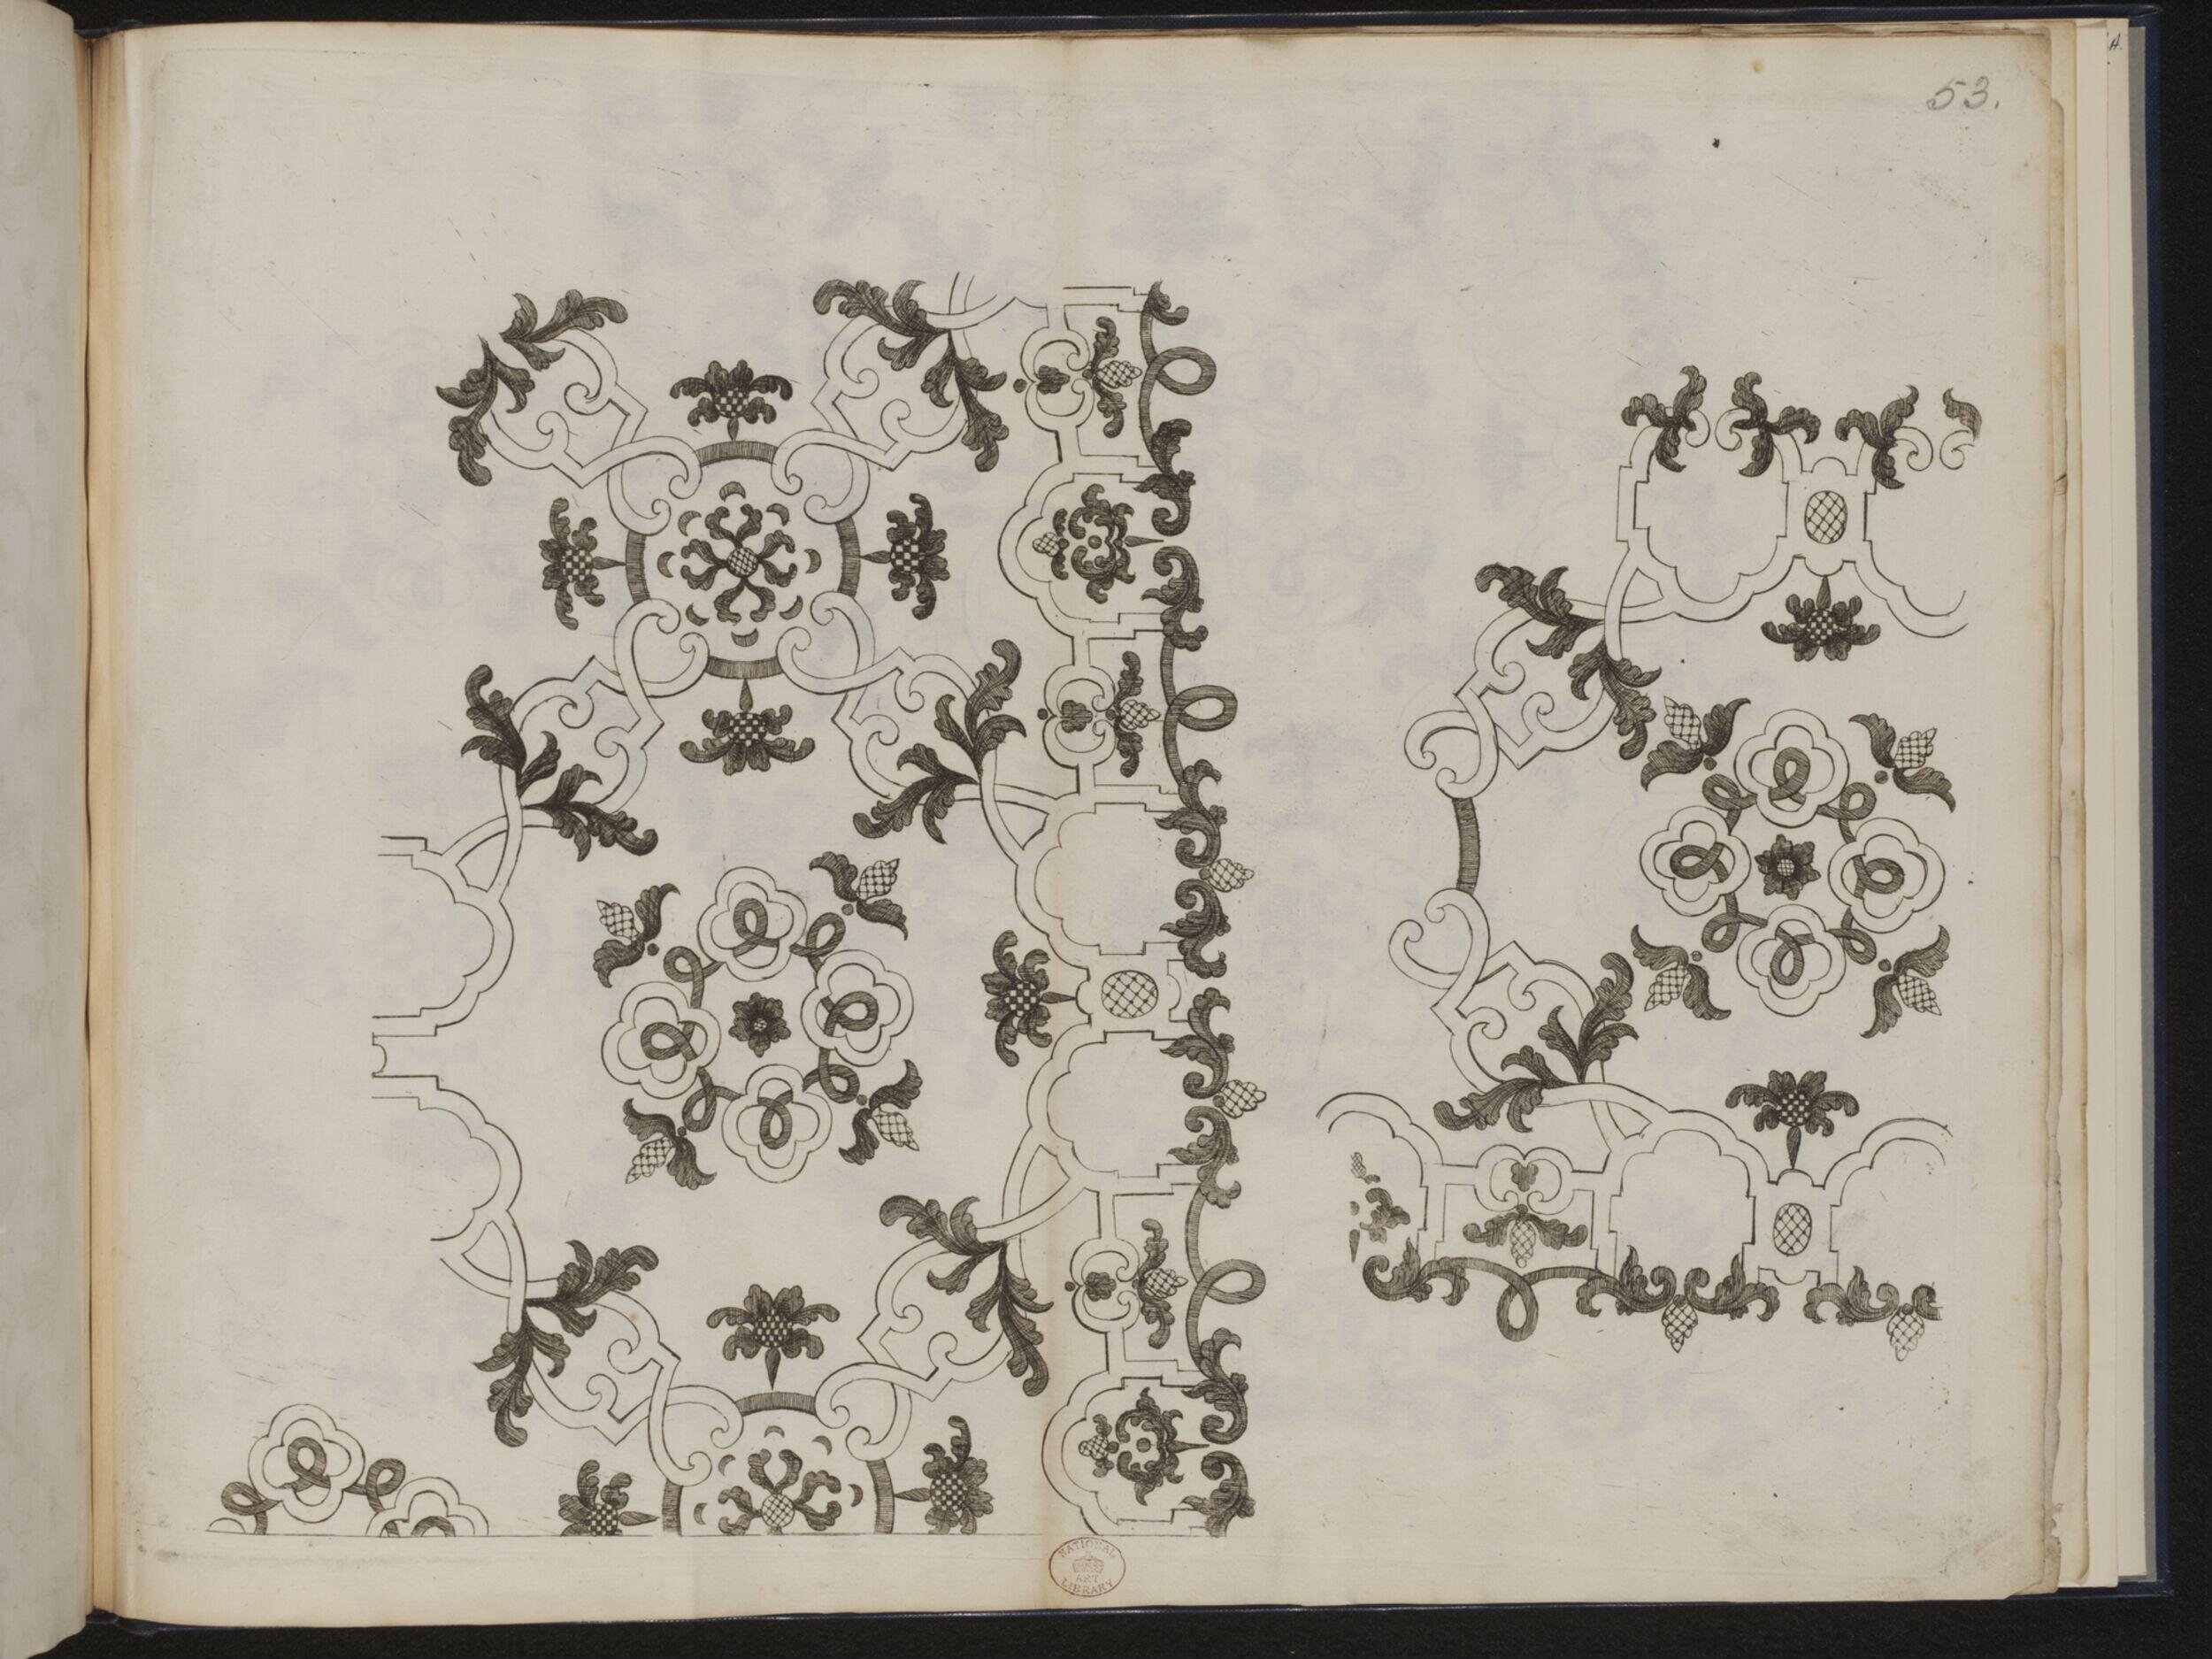 53.
NATIONAL
ART
LIBRARY